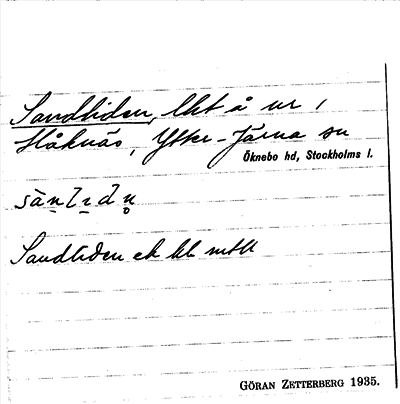 Sandliden, lht å ur i
Håknäs, Ytter-Järna sn
Öknebo hd, Stockholms l.
sànlìdn̥
Sandliden ek kl
GÖRAN ZETTERBERG 1935.